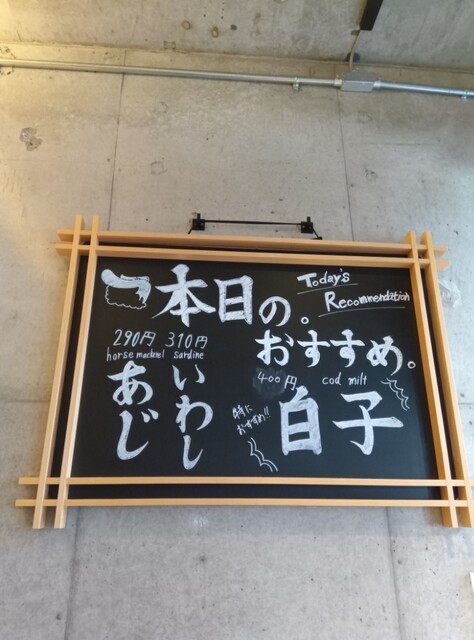 本日の。
おすすめ。
Today's
Recommendation
290円
horse mackerel
あじ
310円
sardine
いわし
400円
cod milt
白子
特に
おすすめ!!